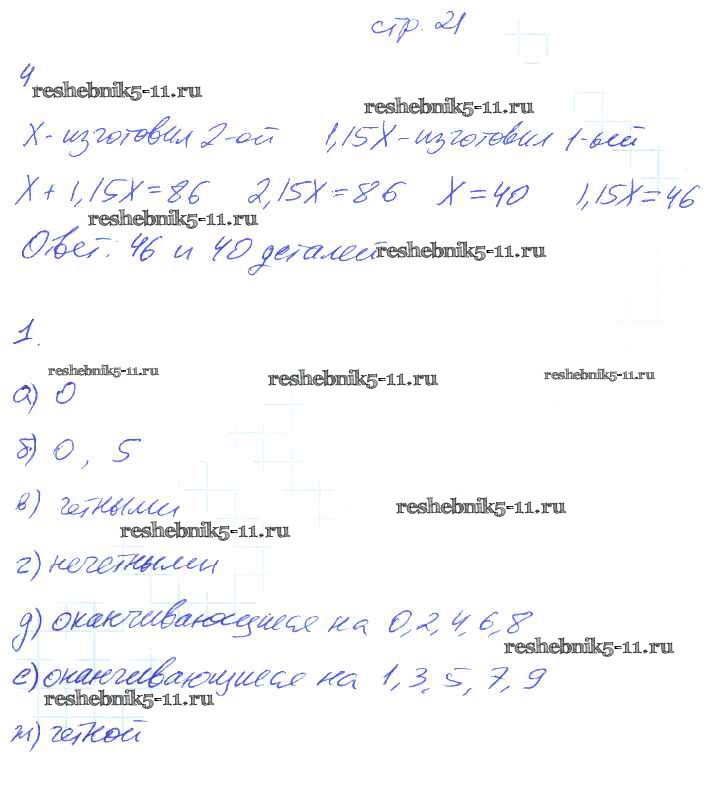 стр. 21
4
reshebnik5-11.ru
reshebnik5-11.ru
X - изготовил 2-ой 1,15X - изготовил 1-ый
X + 1,15X = 86 2,15X = 86 X = 40 1,15X = 46
reshebnik5-11.ru
Ответ: 46 и 40 деталей
reshebnik5-11.ru
1.
reshebnik5-11.ru reshebnik5-11.ru reshebnik5-11.ru
а) 0
б) 0, 5
в) четными
reshebnik5-11.ru
reshebnik5-11.ru
г) нечетными
д) оканчивающиеся на 0, 2, 4, 6, 8
reshebnik5-11.ru
е) оканчивающиеся на 1, 3, 5, 7, 9
reshebnik5-11.ru
ж) четной